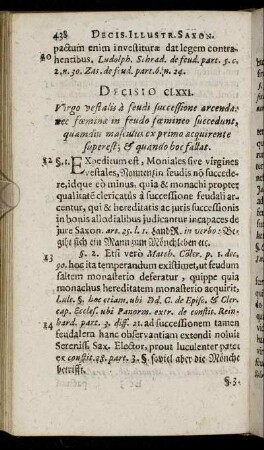 438 DECIS. ILLUSTR. SAXON.
pactum enim investituræ dat legem contra-
hentibus. Ludolph. Schrad. de feud. part. 5. c.
2. n. 30. Zas. de feud. part. 6. n. 24.
DECISIO CLXXI.
Virgo vestalis à feudi successione arcenda:
nec fœminæ in feudo fœmineo succedunt,
quamdiu masculus ex primo acquirente
superest; & quando hoc fallat.
12 §. 1. EXpeditum est, Moniales sive virgines
vestales, Nonnen in feudis nõ succede-
re, idque eò minus, quia & monachi propter
qualitatem clericatus à successione feudali ar-
centur, qui & hereditatis ac juris successionis
in bonis allodialibus judicantur incapaces de
jure Saxon. art. 25. l. 1. LandR. in verbo: Be-
gibt sich ein Mann zum Mönchleben etc.
§. 2. Etsi verò Matth. Cöler. p. 1. dec.
13 90. hoc ita temperandum existimet, ut feudum
saltem monasterio deferatur, quippe quia
monachus hereditatem monasterio acquirit.
Late. §. hoc etiam, ubi Dd. C. de Episc. & Cler-
cap. Eccles. ubi Panorm. extr. de constit. Rein-
hard. part. 3. diff. 21. ad successionem tamen
14 feudalem hanc observantiam extendi noluit
Sereniss. Sax. Elector, prout luculenter patet
ex constit. 48. part. 3. §. soviel aber die Mönche
betrifft.
§. 3.